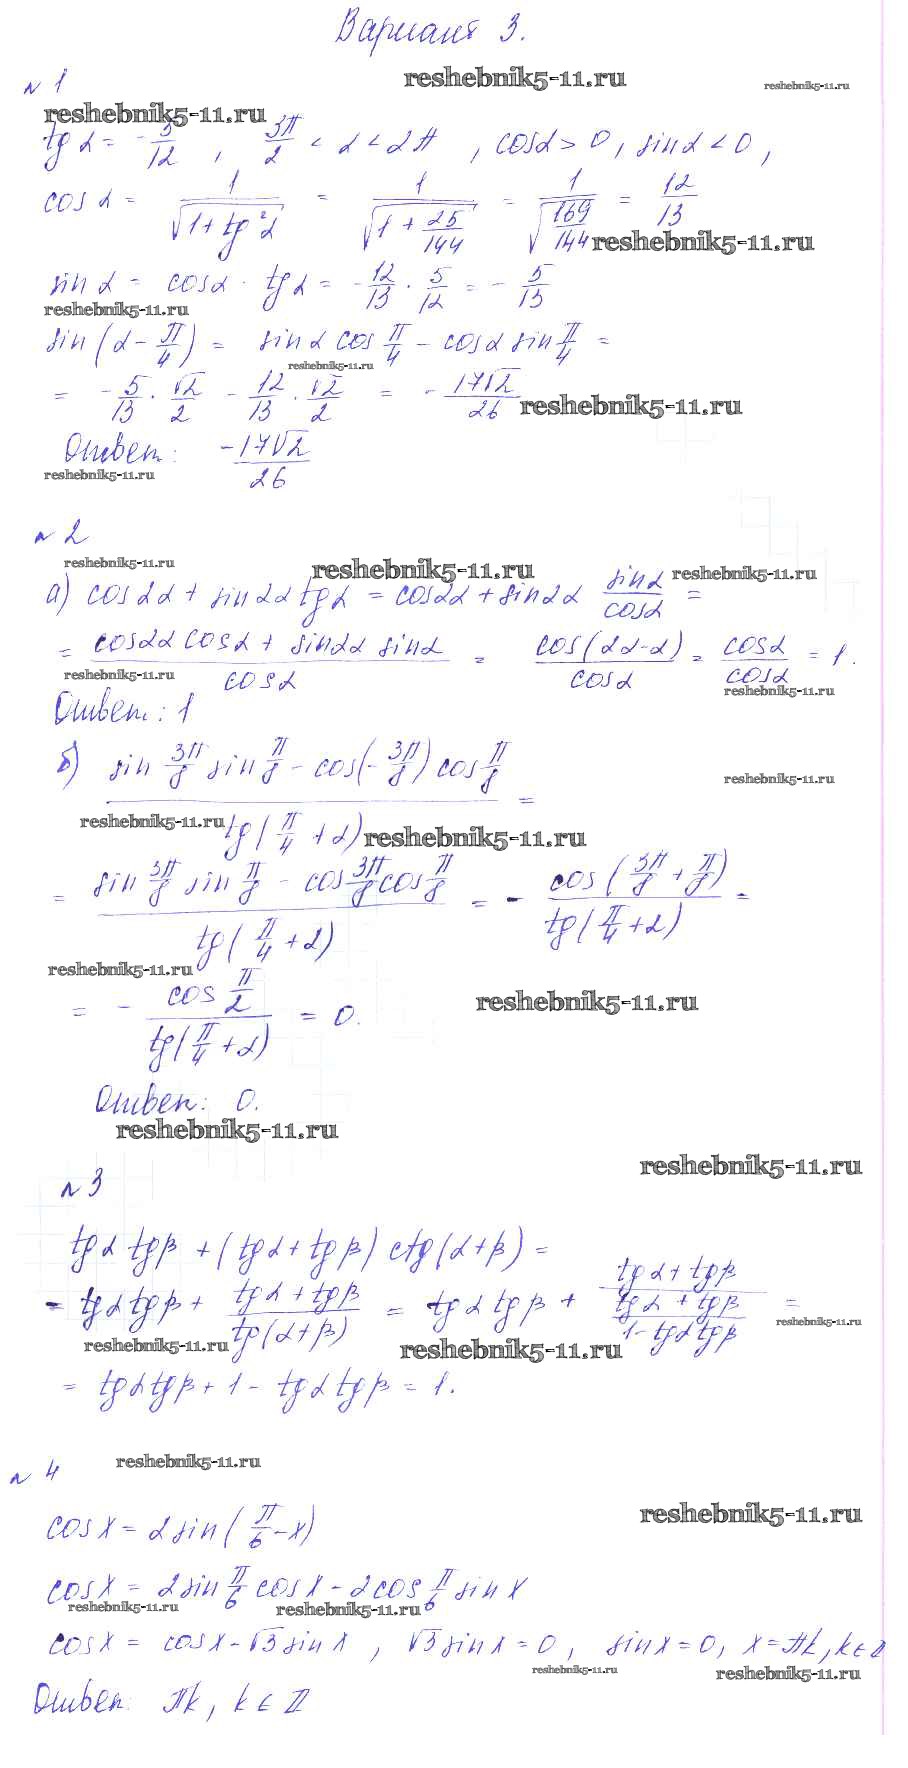 Вариант 3.
№ 1
reshebnik5-11.ru
reshebnik5-11.ru
reshebnik5-11.ru
tg α = -5/12, 3π/2 < α < 2π, cos α > 0, sin α < 0,
cos α = 1/√(1 + tg²α) = 1/√(1 + 25/144) = 1/√(169/144) = 12/13
reshebnik5-11.ru
sin α = cos α · tg α = -12/13 · 5/12 = -5/13
reshebnik5-11.ru
sin(α - π/4) = sin α cos π/4 - cos α sin π/4 =
reshebnik5-11.ru
= -5/13 · √2/2 - 12/13 · √2/2 = -17√2/26
reshebnik5-11.ru
Ответ: -17√2/26
reshebnik5-11.ru
№ 2
reshebnik5-11.ru
reshebnik5-11.ru
reshebnik5-11.ru
а) cos 2α + sin 2α tg α = cos 2α + sin 2α sin α/cos α =
= (cos 2α cos α + sin 2α sin α)/cos α = cos(2α - α)/cos α = cos α/cos α = 1.
reshebnik5-11.ru
reshebnik5-11.ru
Ответ: 1
б) (sin 3π/8 sin π/8 - cos(-3π/8) cos π/8)/tg(π/4 + α) =
reshebnik5-11.ru
reshebnik5-11.ru
reshebnik5-11.ru
= (sin 3π/8 sin π/8 - cos 3π/8 cos π/8)/tg(π/4 + α) = - cos(3π/8 + π/8)/tg(π/4 + α) =
reshebnik5-11.ru
= - cos π/2/tg(π/4 + α) = 0.
reshebnik5-11.ru
Ответ: 0.
reshebnik5-11.ru
reshebnik5-11.ru
№ 3
tg α tg β + (tg α + tg β) ctg(α + β) =
= tg α tg β + (tg α + tg β)/tg(α + β) = tg α tg β + (tg α + tg β)/((tg α + tg β)/(1 - tg α tg β)) =
reshebnik5-11.ru
reshebnik5-11.ru
reshebnik5-11.ru
= tg α tg β + 1 - tg α tg β = 1.
reshebnik5-11.ru
№ 4
reshebnik5-11.ru
cos x = 2 sin(π/6 - x)
cos x = 2 sin π/6 cos x - 2 cos π/6 sin x
reshebnik5-11.ru
reshebnik5-11.ru
cos x = cos x - √3 sin x, √3 sin x = 0, sin x = 0, x = πk, k ∈ Z
reshebnik5-11.ru
reshebnik5-11.ru
Ответ: πk, k ∈ Z